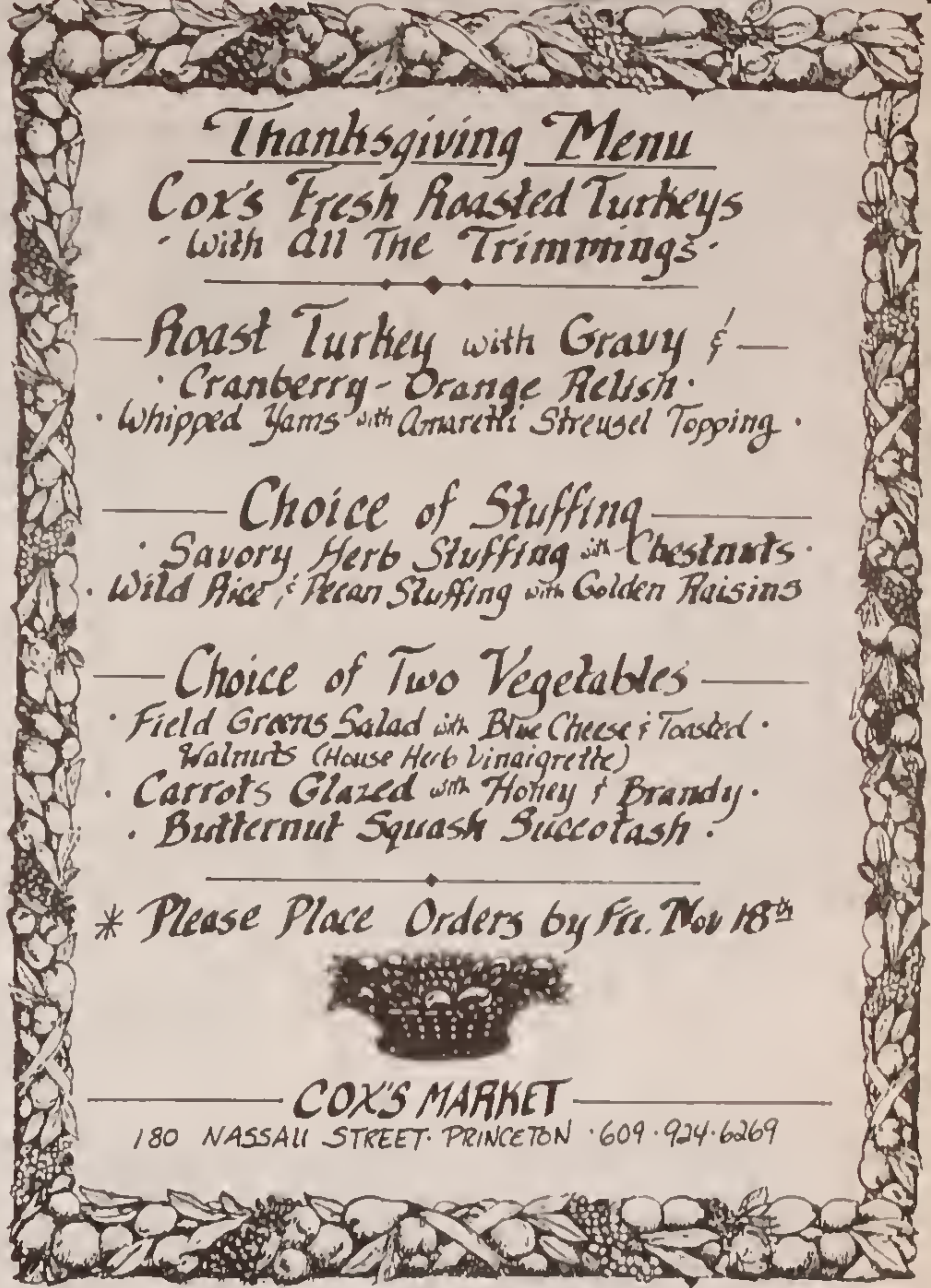 Thanksgiving Menu
Cox's Fresh Roasted Turkeys
· With All The Trimmings ·
Roast Turkey with Gravy &
· Cranberry - Orange Relish ·
· Whipped Yams with Amaretti Streusel Topping ·
Choice of Stuffing
· Savory Herb Stuffing with Chestnuts ·
· Wild Rice & Pecan Stuffing with Golden Raisins
Choice of Two Vegetables
· Field Greens Salad with Blue Cheese & Toasted ·
Walnuts (House Herb Vinaigrette)
· Carrots Glazed with Honey & Brandy ·
· Butternut Squash Succotash ·
* Please Place Orders by Fri. Nov 18th
COX'S MARKET
180 NASSAU STREET · PRINCETON · 609 · 924 · 6269